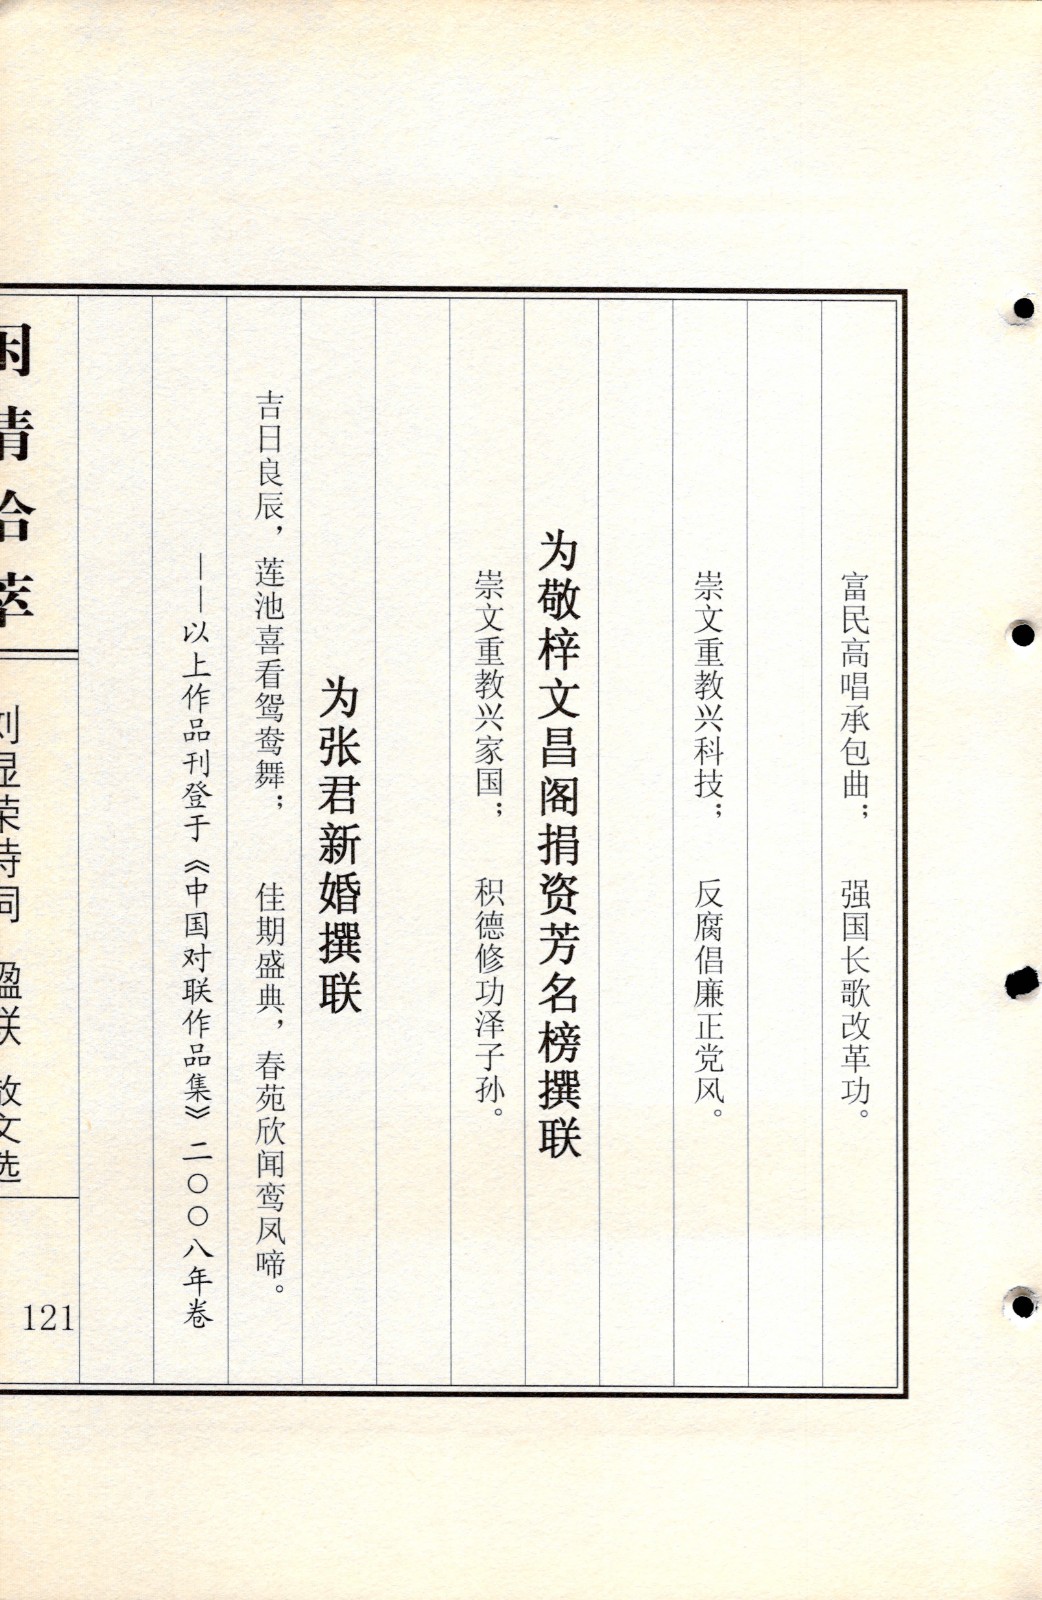 富民高唱承包曲；　强国长歌改革功。
崇文重教兴科技；　反腐倡廉正党风。
为敬梓文昌阁捐资芳名榜撰联
崇文重教兴家国；　积德修功泽子孙。
为张君新婚撰联
吉日良辰，莲池喜看鸳鸯舞；　佳期盛典，春苑欣闻鸾凤啼。
——以上作品刊登于《中国对联作品集》二〇〇八年卷
拾萃
刘显荣诗词　楹联　散文选
121